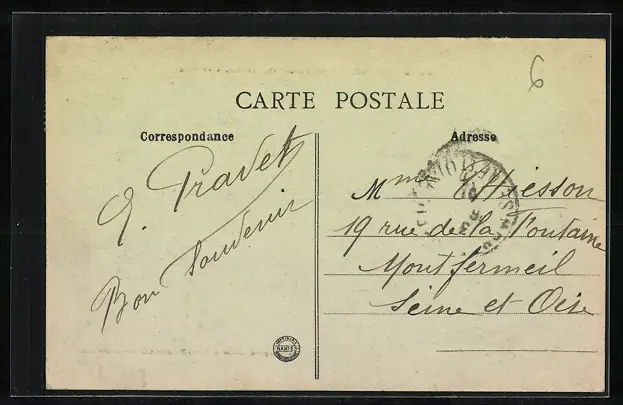 6
CARTE POSTALE
Correspondance
Adresse
Bon Souvenir
Mme Thiesson
19 rue de la Fontaine
Montfermeil
Seine et Oise
NANTES